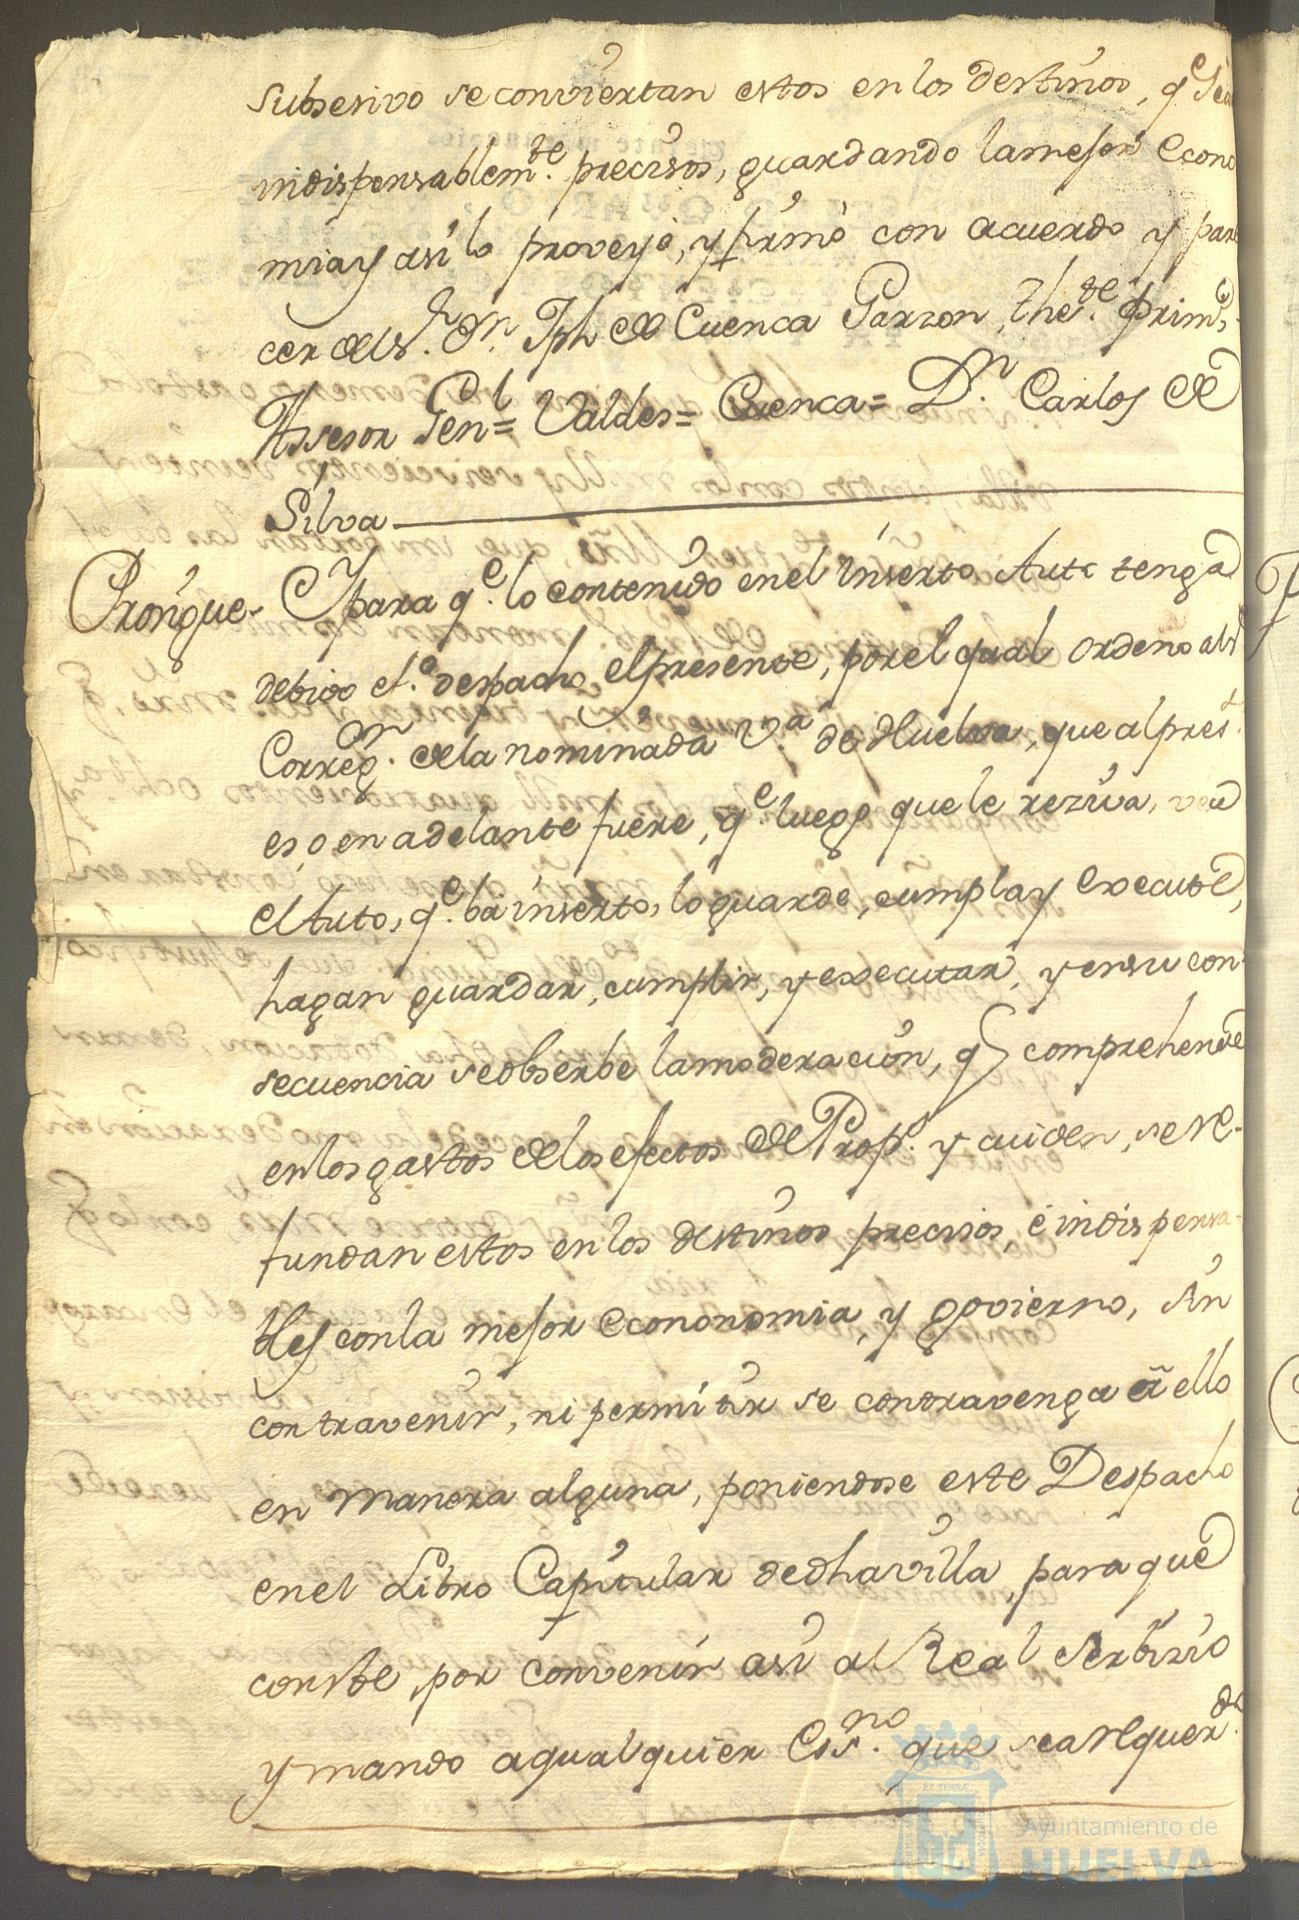 subsesivo se conviertan estos en los destinos, qᵉ sean
indispensablemᵗᵉ. precisos, guardando la mejor econo
mia y asi lo proveyó, y firmó con acuerdo y pare
cer del sʳ. Dⁿ. Jph de Cuenca Garzon, Theᵗᵉ. primᵒ,
Assesor Genˡ = Valdes = Cuenca = Dⁿ. Carlos de
Silva
Prosigue - Y para qᵉ. lo contenido en el inserto Auto tenga
debido efᵒ. despacho el presente, por el qual ordeno al sʳ
Corregᵒʳ. de la nominada Vᵃ. de Huelva, que al presᵗᵉ.
es, o en adelante fuere, qᵉ. luego que le reziva, vea
el Auto, qᵉ. bá inserto, lo guarde, cumpla y execute,
hagan guardar, cumplir, y executar, y en su con-
secuencia se obserbe la moderacion, q comprehende
en los gastos de los efectos de Propˢ. y cuiden, se re-
fundan estos en los destinos precisos, é indispensa-
bles con la mejor econonomia, y govierno, sin
contravenir, ni permitir se contravenga á ello
en manera alguna, poniendose este Despacho
en el Libro Capitular de dha villa, para que
conste, por convenir asi al Real serbizio
y mando a qualquier Essⁿᵒ. que sea requerᵈᵒ.
ET TERRÆ
Ayuntamiento de
HUELVA